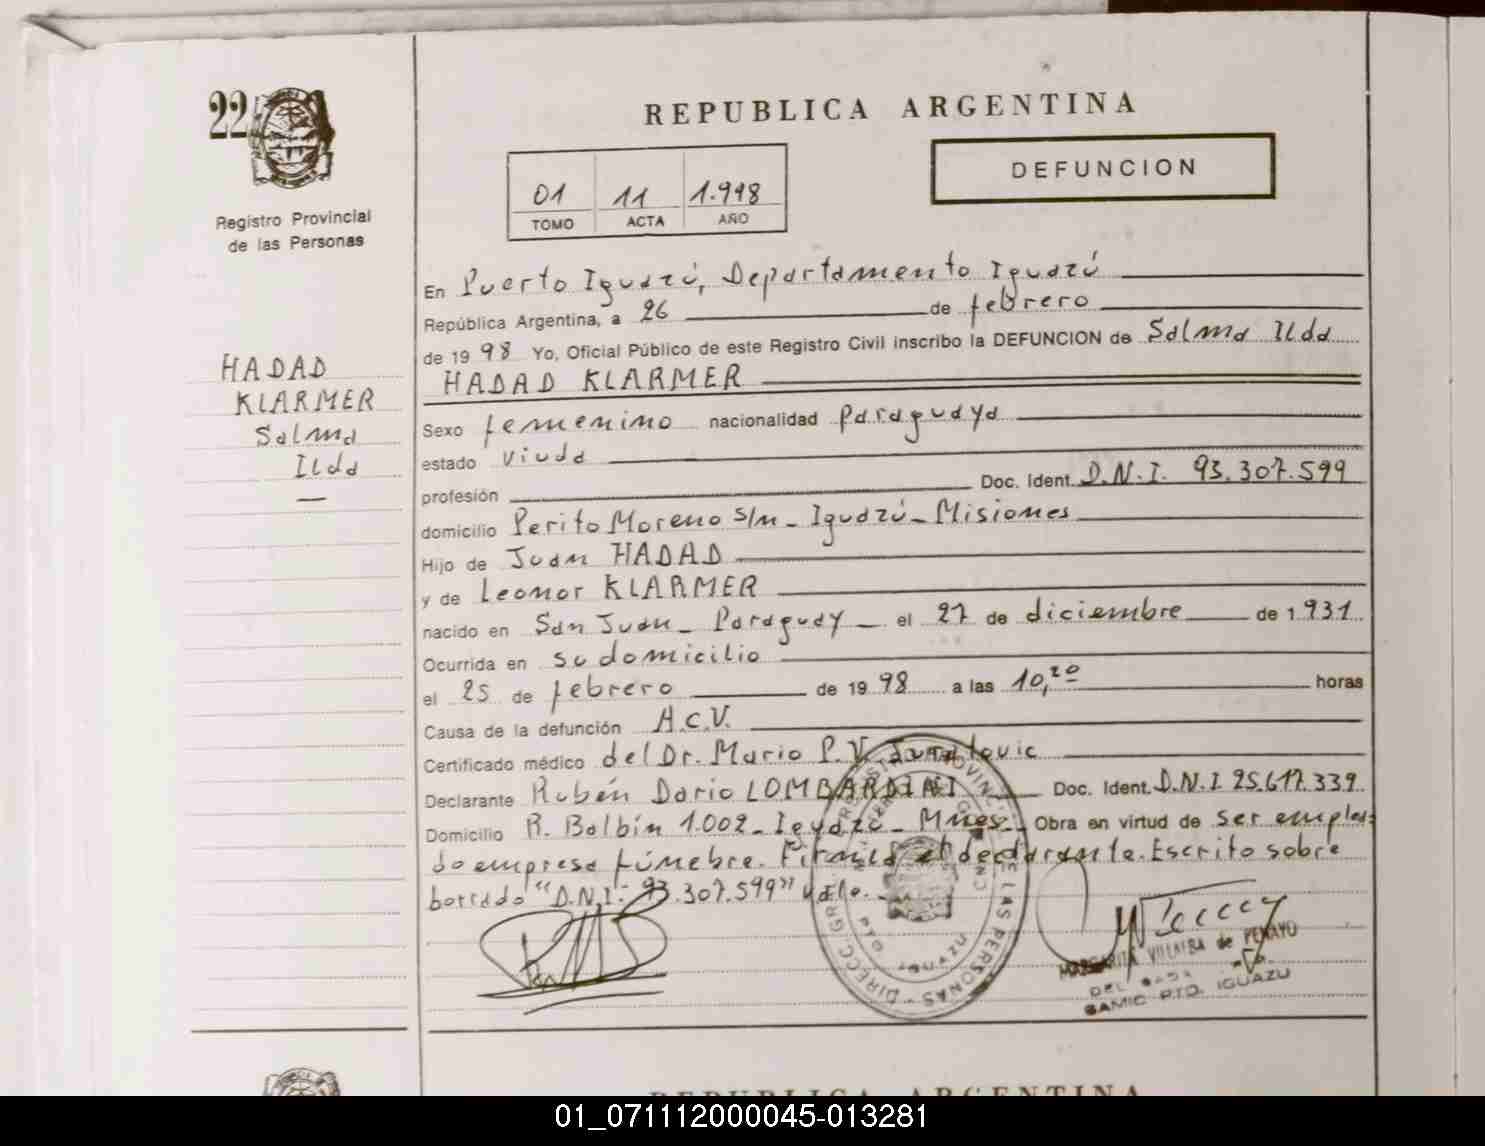 22
Registro Provincial
de las Personas
HADAD
KLARMER
Salma
Ilda
REPUBLICA ARGENTINA
01 11 1.998
TOMO ACTA AÑO
DEFUNCION
En Puerto Iguazú, Departamento Iguazú
República Argentina, a 26 de febrero
de 1998 Yo, Oficial Público de este Registro Civil inscribo la DEFUNCION de Salma Ilda
HADAD KLARMER
Sexo femenino nacionalidad Paraguaya
estado viuda
profesión Doc. Ident. D.N.I. 93.307.599
domicilio Perito Moreno s/n - Iguazú - Misiones
Hijo de Juan HADAD
y de Leonor KLARMER
nacido en San Juan - Paraguay - el 27 de diciembre de 1.931
Ocurrida en su domicilio
el 25 de febrero de 1998 a las 10,20 horas
Causa de la defunción A.C.V.
Certificado médico del Dr. Mario P. V.
Declarante Rubén Dario LOMBARDINI Doc. Ident. D.N.I. 25.617.339
Domicilio R. Balbín 1.002 - Iguazú - Mnes. Obra en virtud de ser emplea=
do empresa fúnebre. Firmando el declarante. Escrito sobre
borrado "D.N.I: 93.307.599" vale.
DIRECC. GRAL. REGISTRO PROVINC. DE LAS PERSONAS
PTO IGUAZU
MARGARITA VILLALBA de PENAYO
SAMIC PTO. IGUAZU
REPUBLICA ARGENTINA
01_071112000045-013281